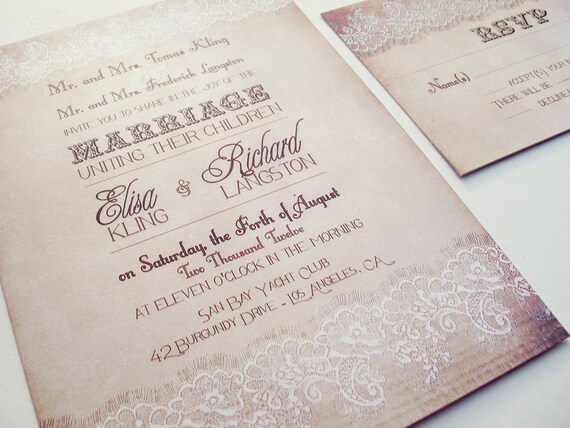 Mr. and Mrs. Tomas Kling
Mr. and Mrs. Frederick Langston
INVITE YOU TO SHARE IN THE JOY OF THE
MARRIAGE
UNITING THEIR CHILDREN
Elisa & Richard
KLING LANGSTON
on Saturday, the Forth of August
Two Thousand Twelve
AT ELEVEN O'CLOCK IN THE MORNING
SAN BAY YACHT CLUB
42 BURGUNDY DRIVE - LOS ANGELES, CA
RSVP
NAME(S)
ACCEPT(S) YOUR
THERE WILL BE
DECLINE